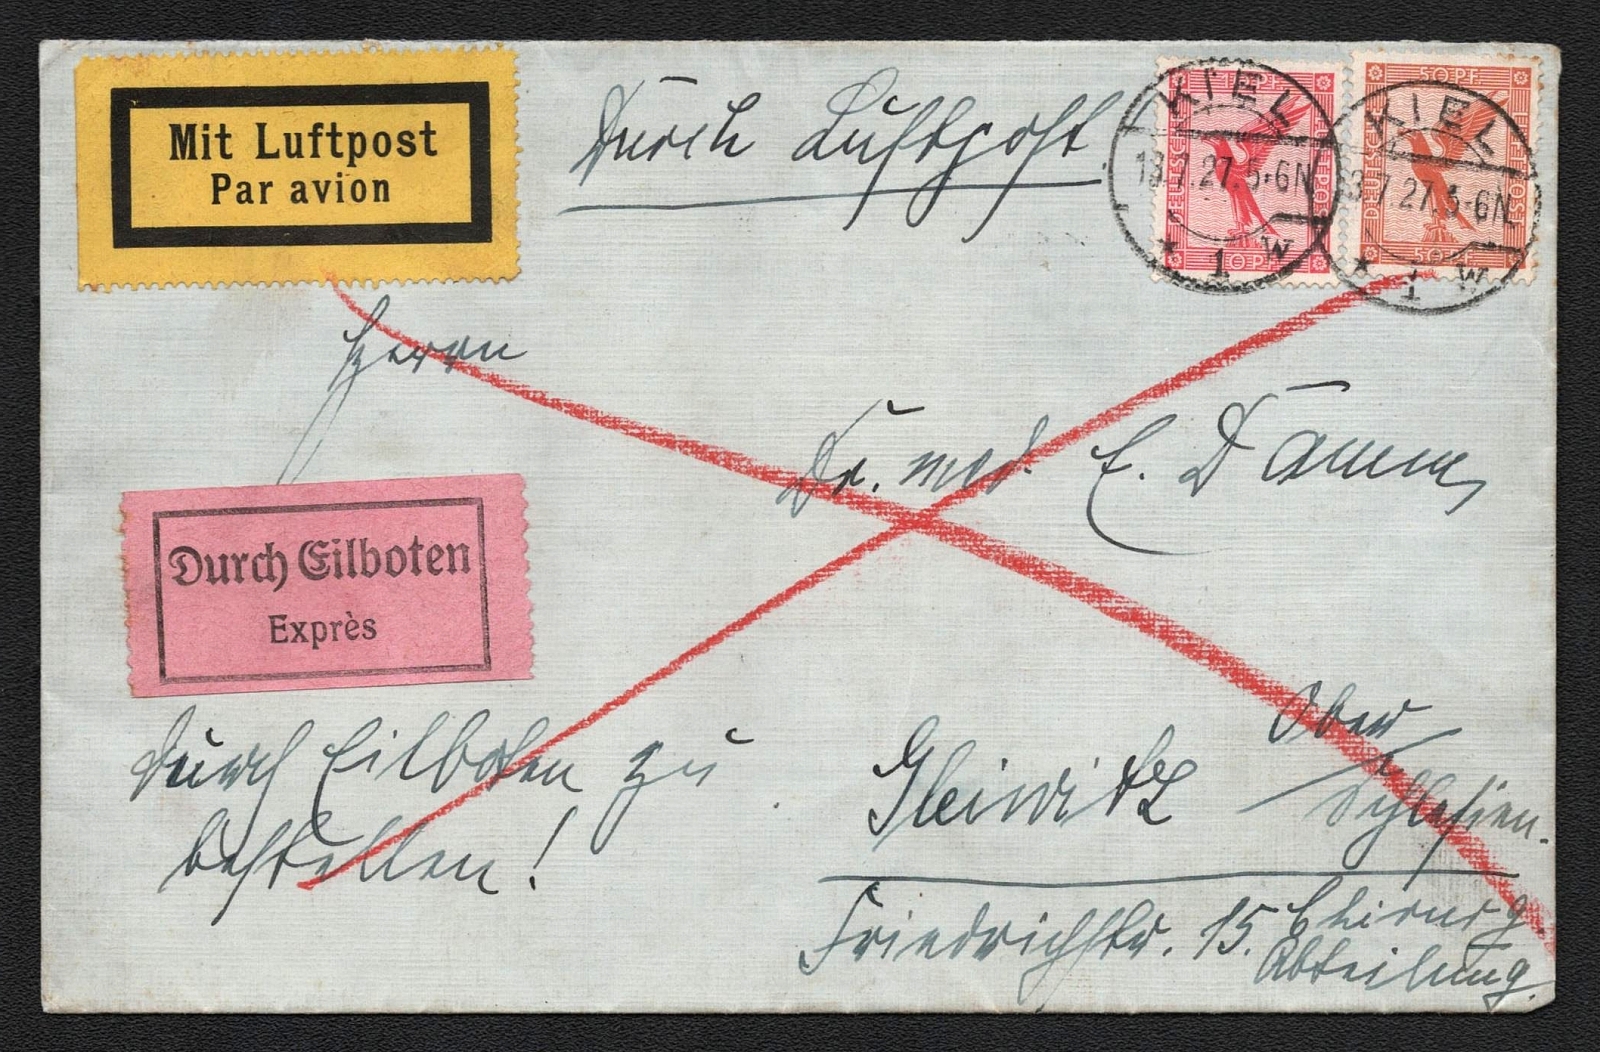 Mit Luftpost
Par avion
Durch Luftpost.
KIEL
13.7.27.5-6N
* 1 W
10 PF
KIEL
13.7.27.5-6N
* 1 W
50 PF.
DEUTSCHE REICHSPOST
Herrn
Dr. med. E. Damm,
Durch Eilboten
Exprès
Durch Eilboten zu
bestellen!
Gleiwitz Ober
Schlesien.
Friedrichstr. 15. Chirurg
Abteilung.